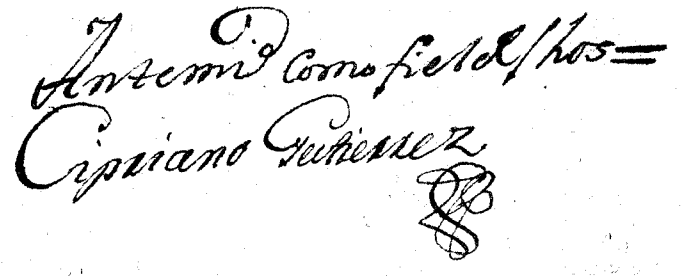 Antemi como fiel de fhos =
Cipriano Gutierrez